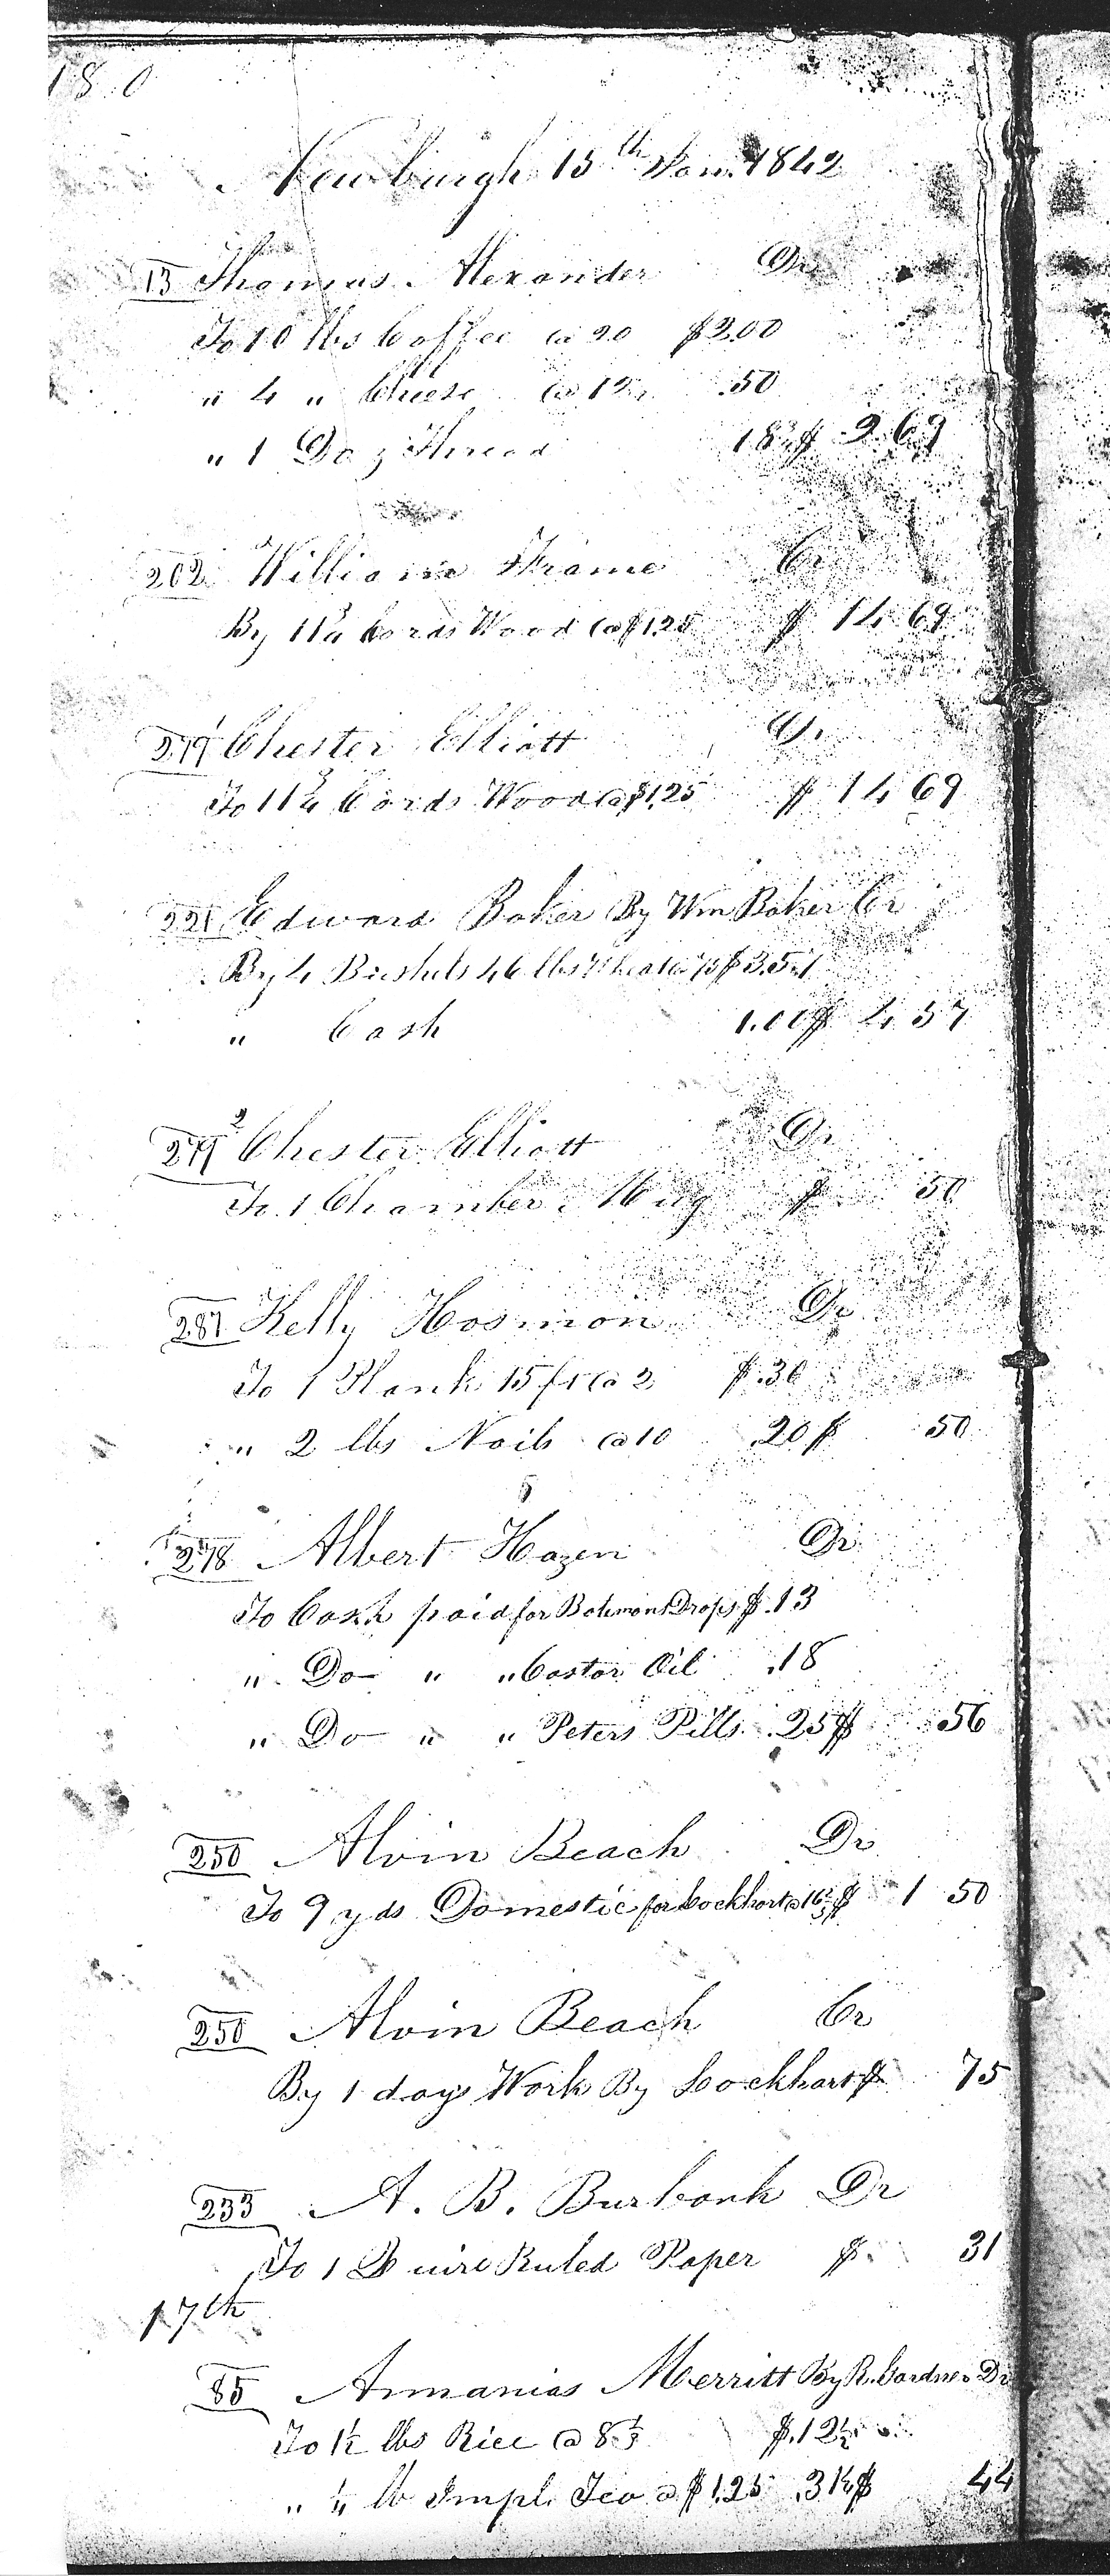 180
Newburgh 15th Jan. 1842
13 Thomas Alexander Dr
To 10 lbs Coffee @ 20 $2.00
" 4 " Cheese @ 12½ .50
" 1 Doz Thread 18¾ $ 2 69
202 William Frame Cr
By 11¾ Cords Wood @ $1.25 $ 14 69
279 1 Chester Elliott Dr
To 11¾ Cords Wood @ $1.25 $ 14 69
221 Edward Baker By Wm Baker Cr
By 4 Bushels 46 lbs Wheat @ 75 $3.57
" Cash 1.00 $ 4 57
279 2 Chester Elliott Dr
To 1 Chamber Mug $ 50
287 Kelly Hosmon Dr
To 1 Plank 15 ft @ 2 $.30
" 2 lbs Nails @ 10 .20 $ 50
278 Albert Hazen Dr
To Cash paid for Batemans Drops $.13
" Do " " Castor Oil .18
" Do " " Peters Pills .25 $ 56
250 Alvin Beach Dr
To 9 yds Domestic for Lockhart @ 16⅔ $ 1 50
250 Alvin Beach Cr
By 1 days Work By Lockhart $ 75
233 A. B. Burbank Dr
To 1 Quire Ruled Paper $. 31
17th
85 Annanias Merritt By R. Gardner Dr
To 1½ lbs Rice @ 8⅓ $.12½
" ¼ lb Impl. Tea @ $1.25 .31¼ $ 44